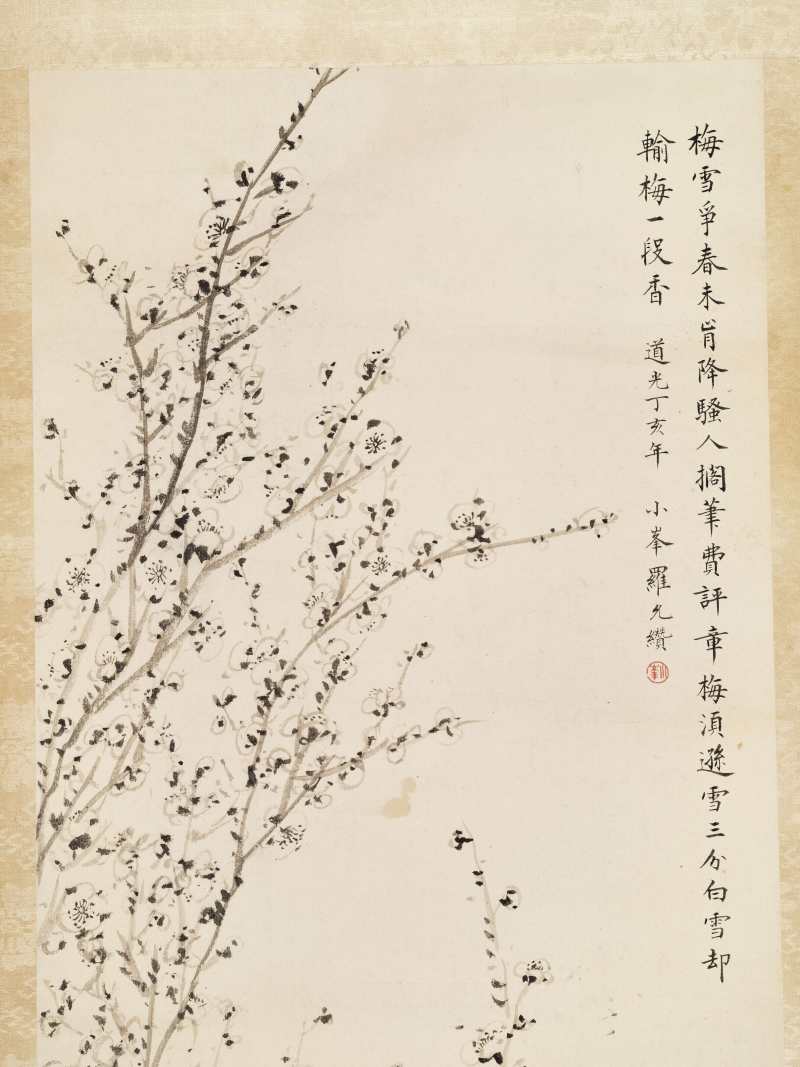 梅雪爭春未肯降騷人擱筆費評章梅須遜雪三分白雪却
輸梅一段香 道光丁亥年 小峯羅允纘